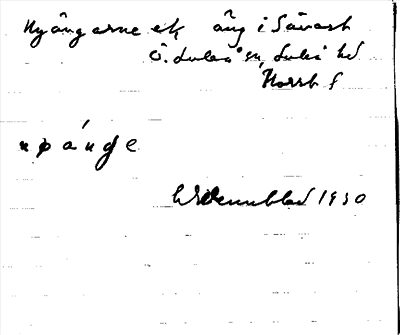 Nyängarne ek äng i Sävast
Ö. Luleå sn, Luleå hd
Norrb l
Wennblad 1930